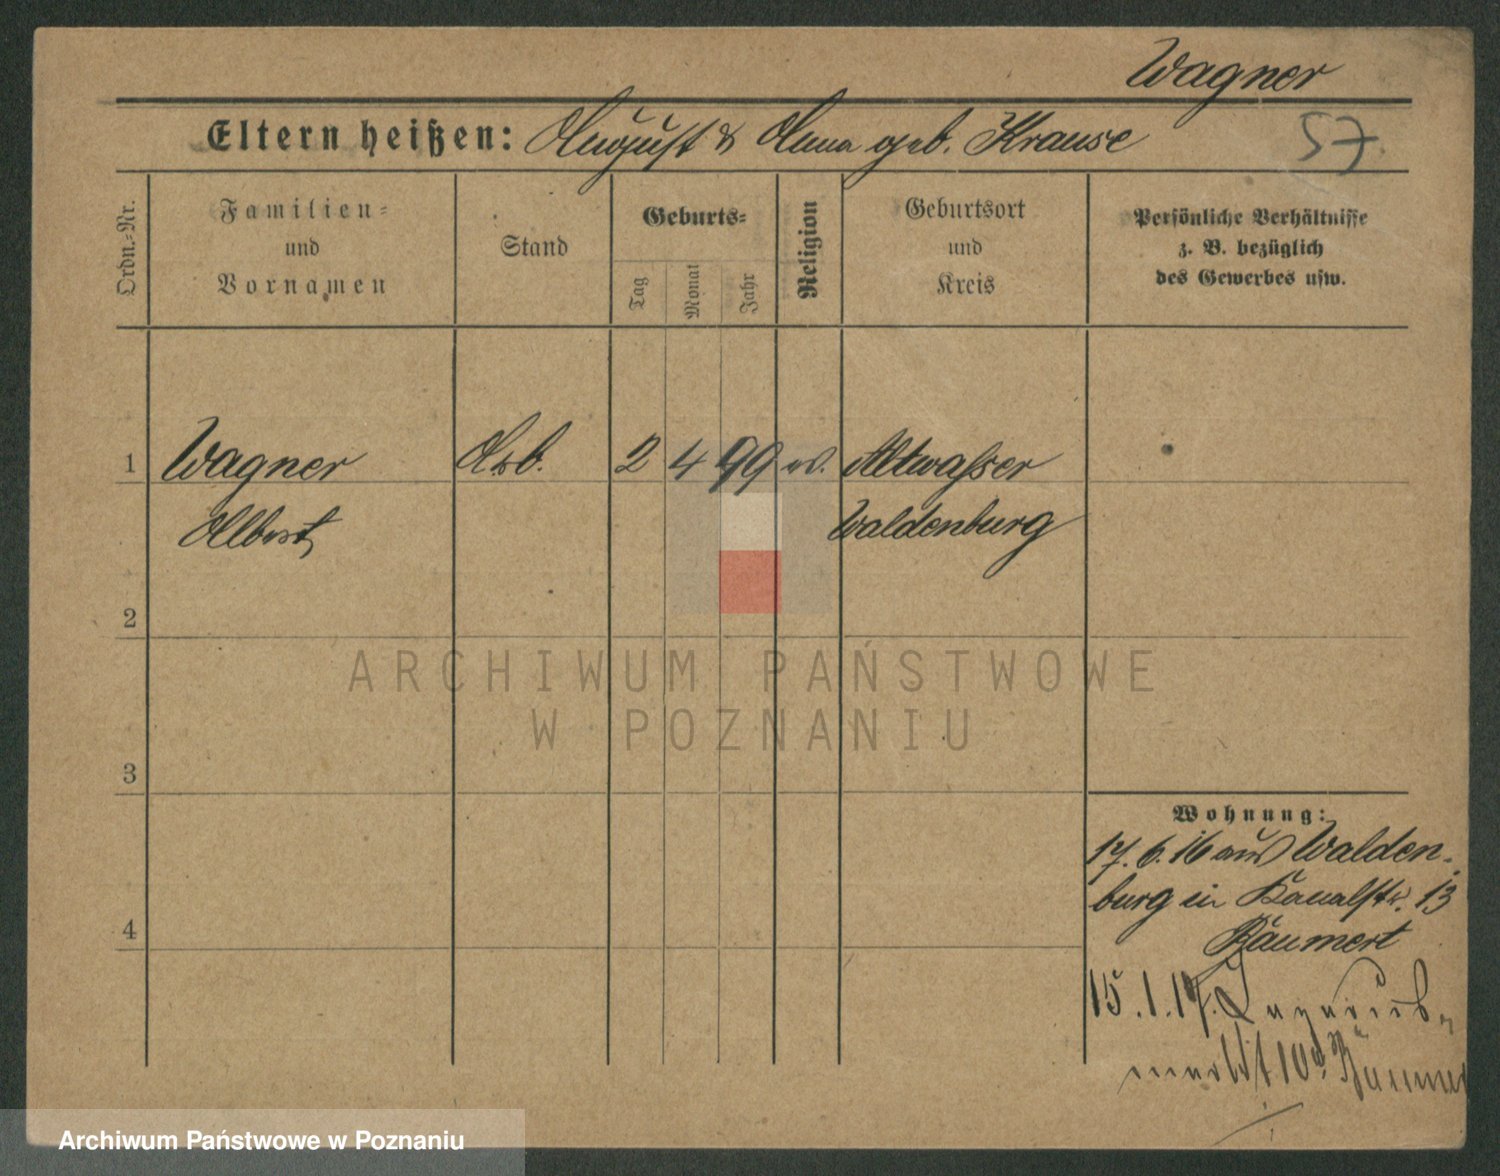 Wagner
Eltern heißen: August & Anna geb. Krause
57.
Ordn.-Nr.
Familien-
und
Vornamen
Stand
Geburts-
Tag
Monat
Jahr
Religion
Geburtsort
und
Kreis
Persönliche Verhältnisse
z. B. bezüglich
des Gewerbes usw.
1 Wagner Arb. 2 4 99 ev. Altwasser
Albert Waldenburg
2
3
4
Wohnung:
17.6.16 aus Walden-
burg in Kanalstr. 13
Bäumert
15.1.17.
10
ARCHIWUM PAŃSTWOWE
W POZNANIU
Archiwum Państwowe w Poznaniu